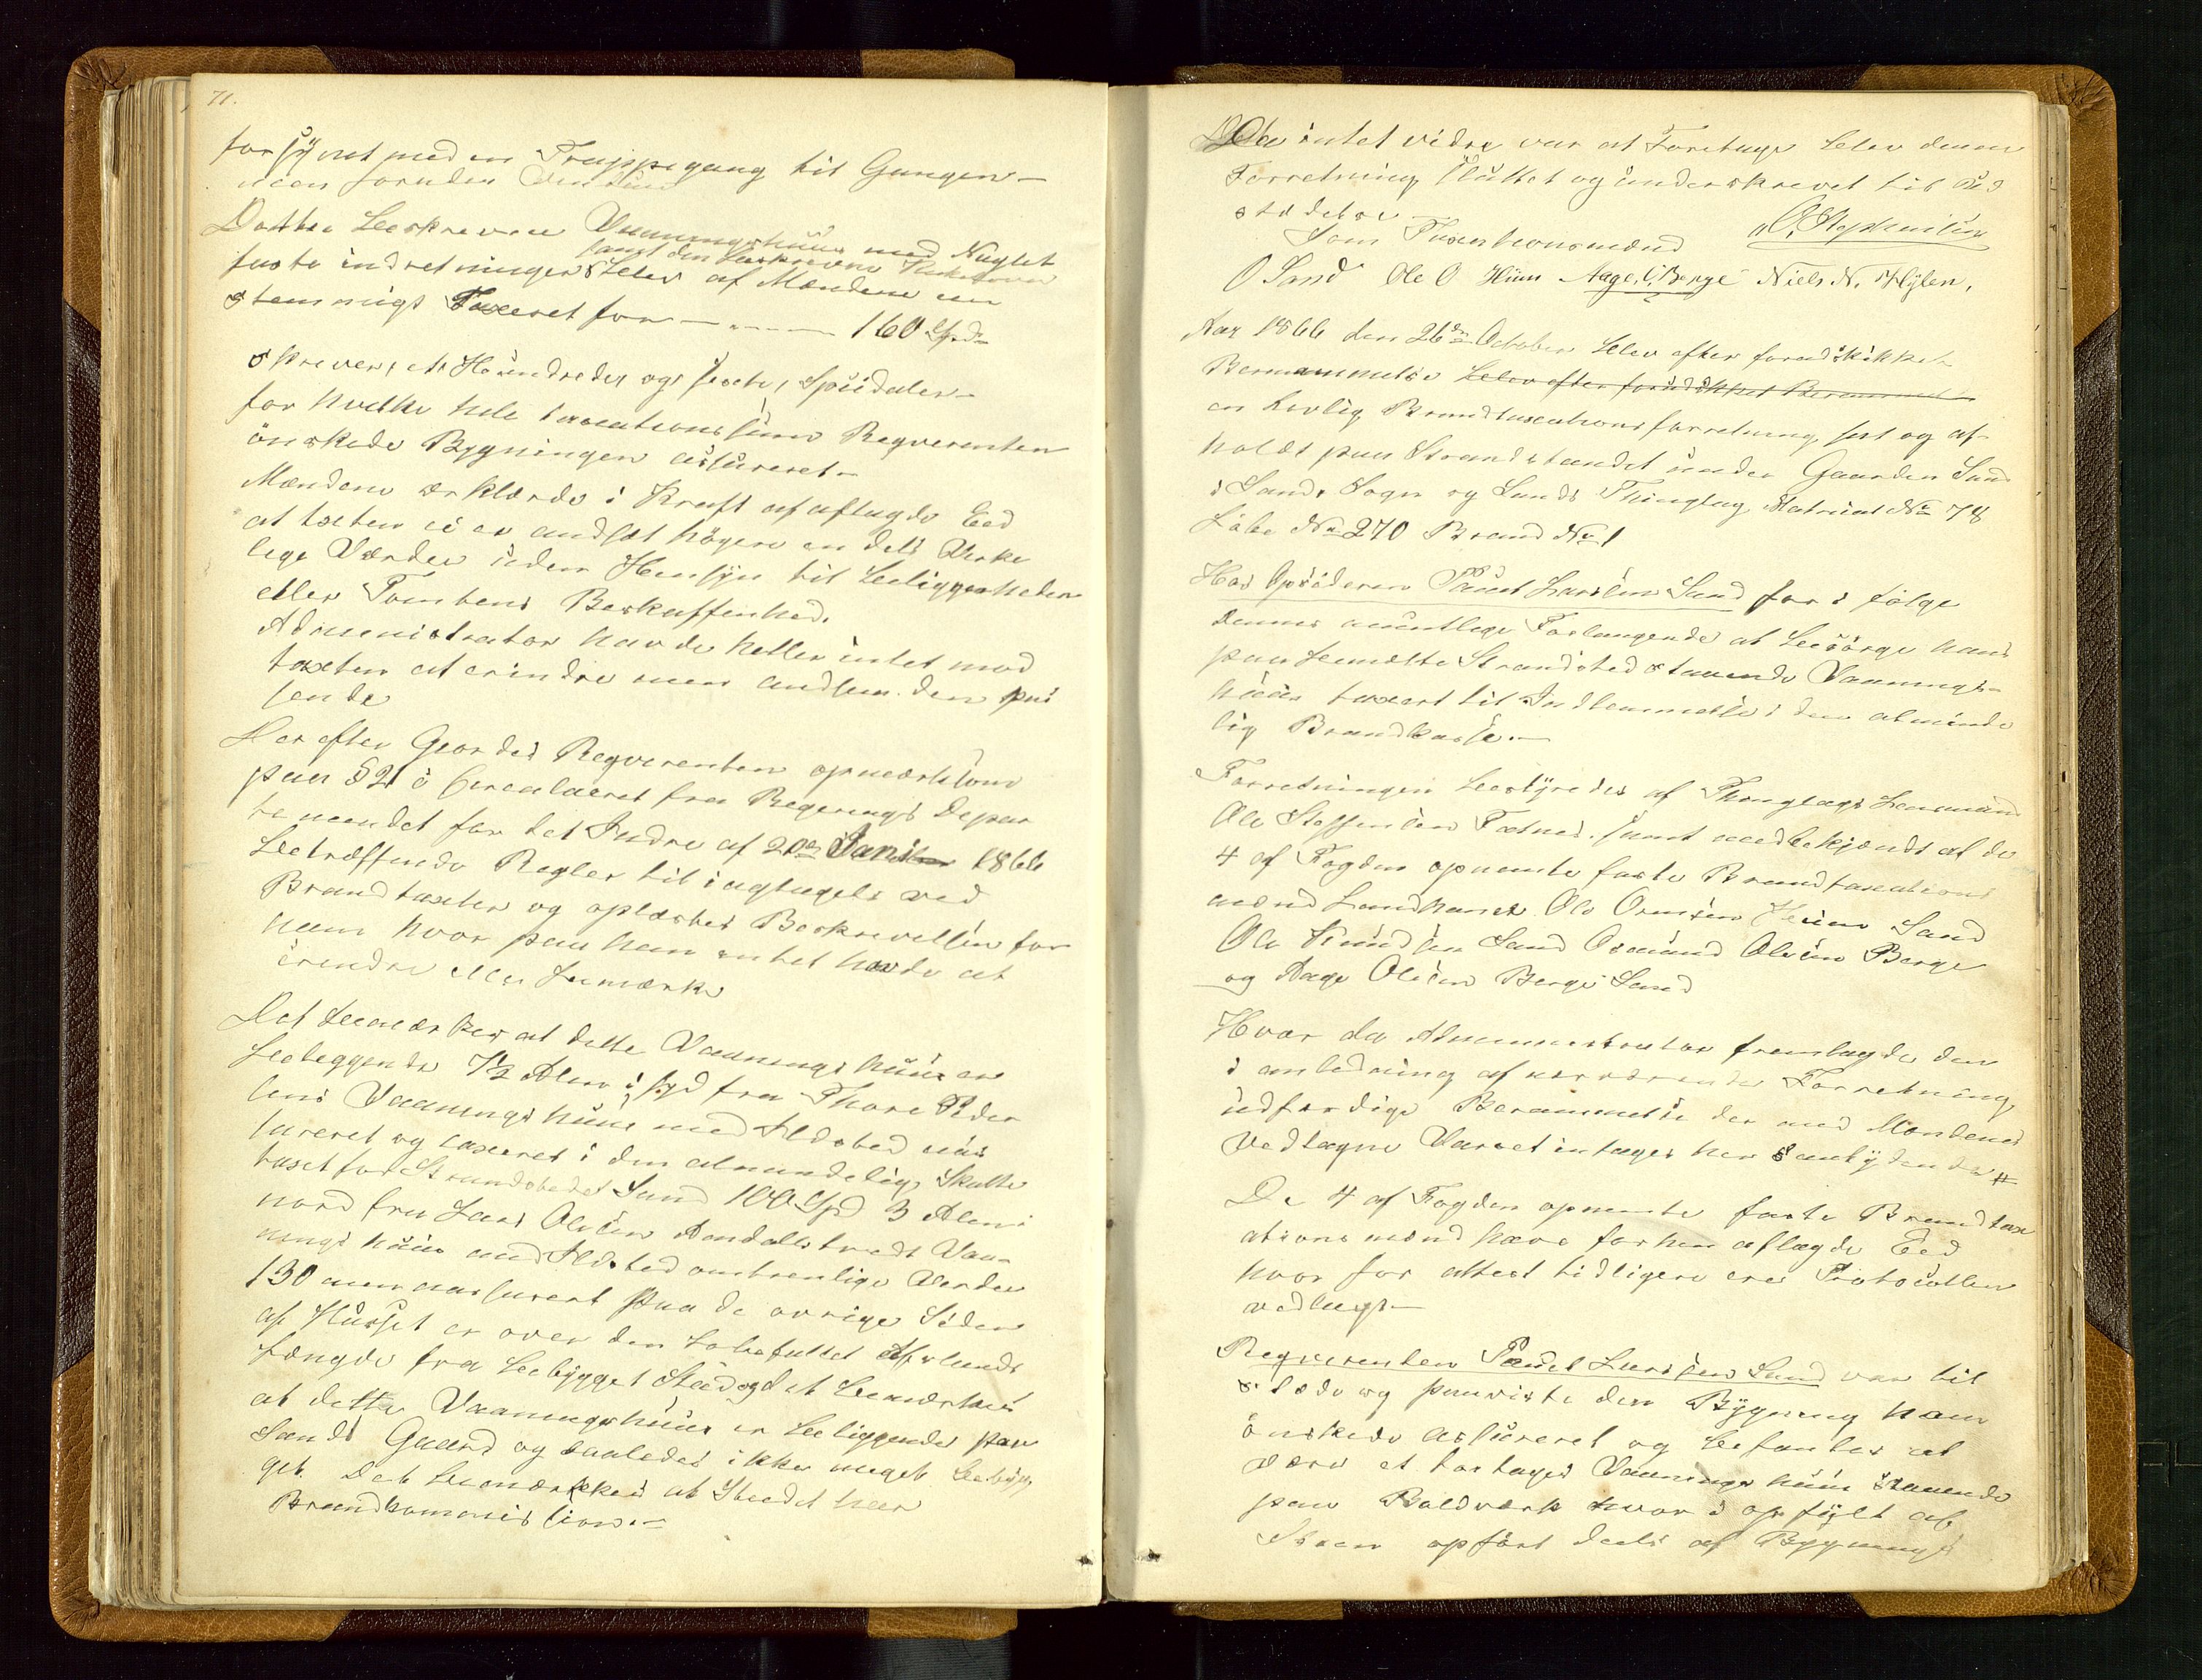 71.
forsÿnet med en Trappegang til Gangen –
men foruden
Dette beskrevne Vaaningshuus med Naglet
samt den beskrevne
faste indretninger blev af Mændene een
stemmigt Taxeret for – – – – – 160 Spd
skriver, et Hoúndrede, og sexti, Spúdaler –
for hvilke hele taxationssum Reqverenten
önskede Bygningen assureret –
Mændene erklærede i Kraft af aflagde Eed
at taxten ei er andsat högere en dets Virke
lige Værdie uden Hensÿn til beliggenheden
eller Tomtens Beskaffenhed.
Administrator havde heller intet mod
taxten at erindre men andsaa den pas
sende
Der efter Giordes Reqverenten opmærksom
paa § 21 i Circulæret fra Regjerings Depar
tementet for det Indre af 20de Juni 1866
betræffende Regler til iagtagels ved
Brandtaxter og oplæstes Beskrivelsen for
ham hvor paa han intet havde at
erindre eller bemærke
Det bemærkes at dette Vaanings húús er
beleggende 7½ Alen i syd fra Thore Peder
sens Vaanings huus med Ildsted uas
sureret og taxeret i den almindelig Skatte
taxt for Strandstedet Sand 100 Spd 3 Alen i
nord fra Lars Olsen Aandalstvedt Vaa-
nings húús med Ildsted omtrentlige Værdie
130 men uassureret paa de övrige Sider
af Húset er over den lovbefalttet Afstands
længde fra bebygget Stæd og det bemærkes
at dette Vaaningshuus er beliggende paa
Sands Gaard og saaledes ikke meget bebyg
get. Det bemærkes at Stedet har
Brandkommission. –
Da intet vidre var at Foretage blev denne
Forretning sluttet og underskrevet til Ud
stædelse –
O. Steffensen
Som Taxationsmænd
O Sand Ole O Hiim Aage. O. Berge Niels N. Hylen,
Aar 1866 den 26de October blev efter forud skikket
Berammelse blev efter forudskikket Berammelse
en lovlig Brandtaxationsforretning, sat og af-
holdt paa Strandstædet ûnder Gaarden Sand
i Sands Sogn og Sands Thinglag, Matricul No 78
Löbe No 270 Brand No 1
Hos Opsideren Poúel Larsen Sand for i fölge
dennes múntlige Forlangende at besörge hans
paa bemeldte Strandsted staaende Vaanings-
húús taxert til Indlemmelse i den alminde
lig Brandkasse. –
Forretningen bestÿredes af Thinglags Lensmand
Ole Steffensen Fatnes. samt medbekjendt af de
4 af Fogden opnemte faste Brandtaxations
mænd Landhand. Ole Ormsen Hiim Sand
Ole Knúdsen Sand Osmúnd Olsen Berge
og Aage Olsen Berge Sand
Hvor da Administrator fremlagde den
i anledning af nærværende Forretning,
udfærdige Berammelse der med Mændenes
Vedtagne Varsel intages her saalÿdende #
De 4 af Fogden opnemte faste Brandtax
ations mænd have forhen aflagde Eed
hvor for attest tidligere ere Protocollen
vedlagt –
Reqverenten Poúel Larsen Sand var til
stede og paaviste den Bÿgning han
önskede assúreret og befantes at
være et toetages Vaanings húús staaende
paa Boldværk hvor i opfÿlt af
Steen opfört deels af Bygnings